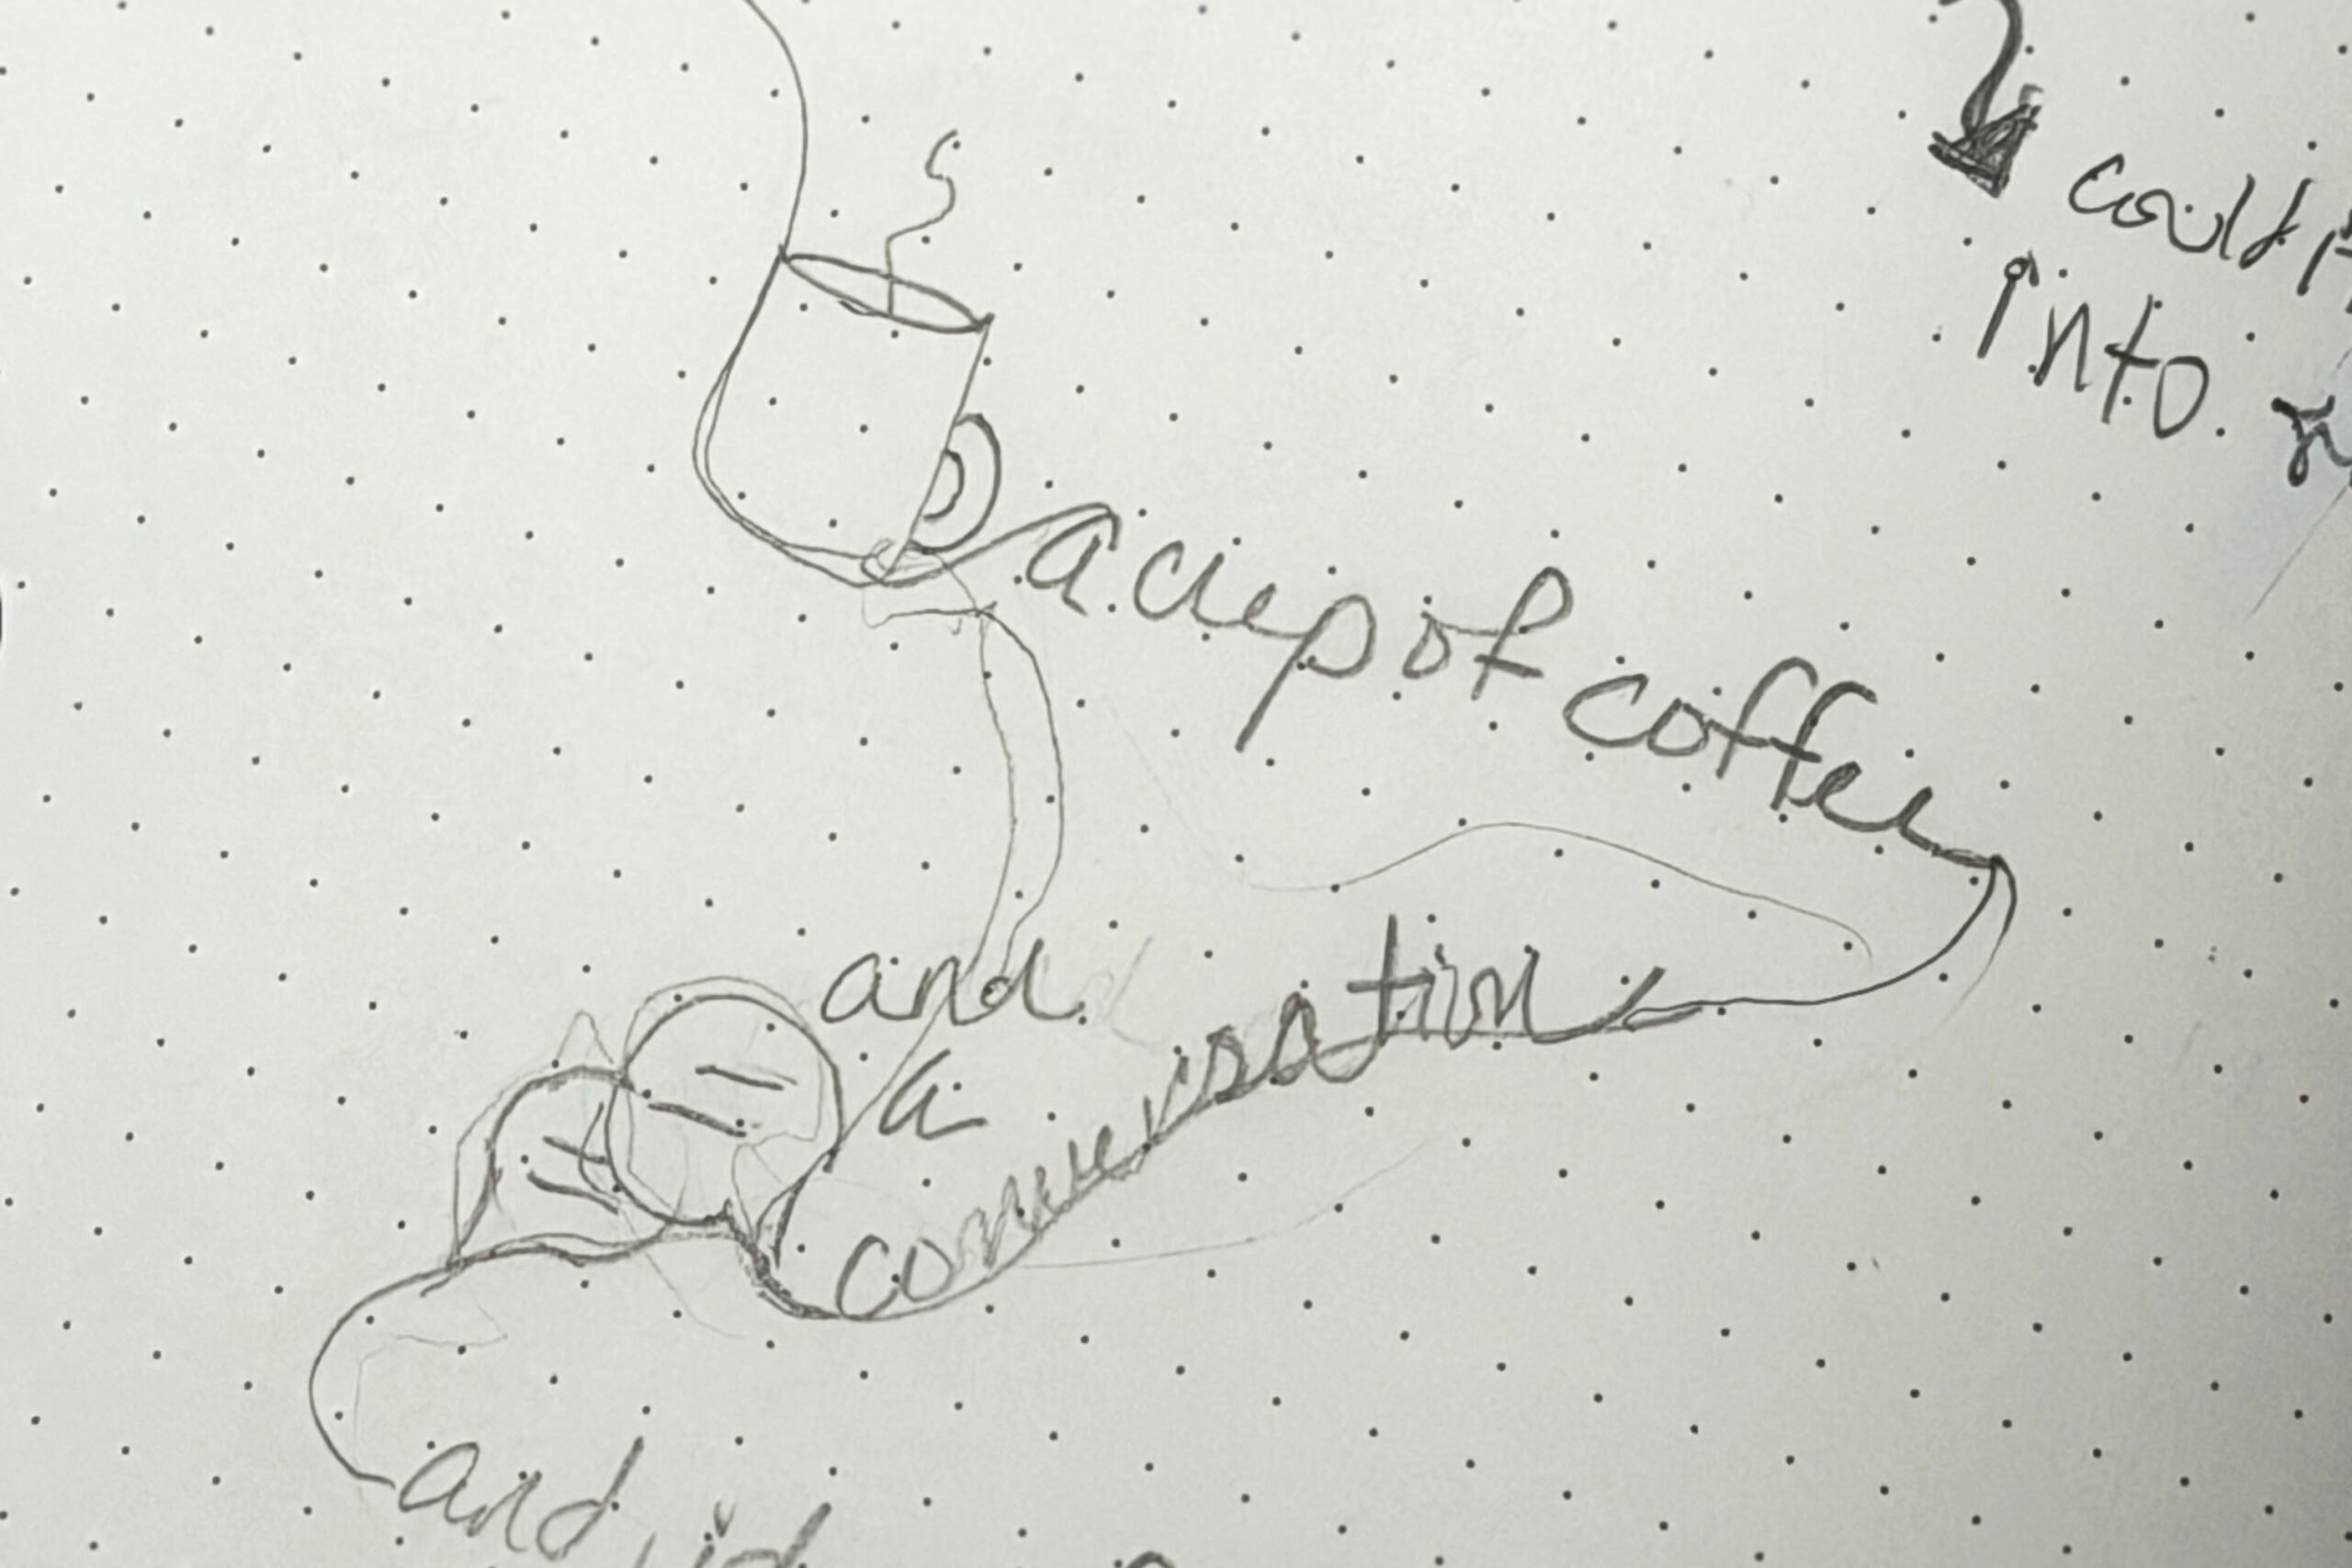 could
into
a cup of coffee
and
a
conversation
and